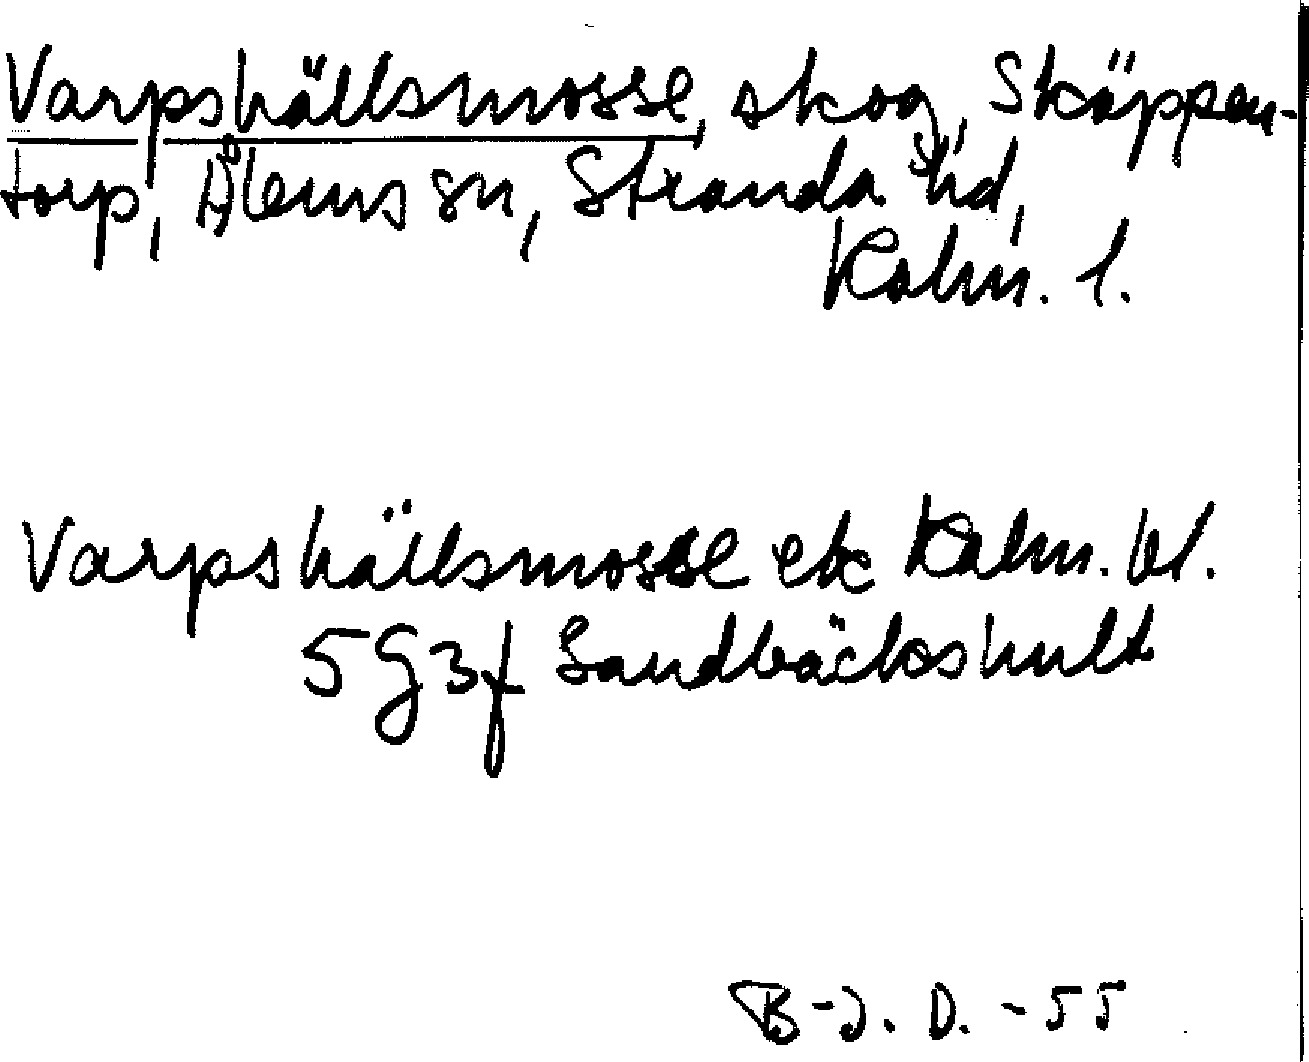 Varpshällsmosse, skog, Skäppen-
torp, Ålems sn, Stranda hd,
Kalm. l.
Varpshällsmosse ek Kalm. bl.
5G3f Sandbäckshult
B-J. D. -55